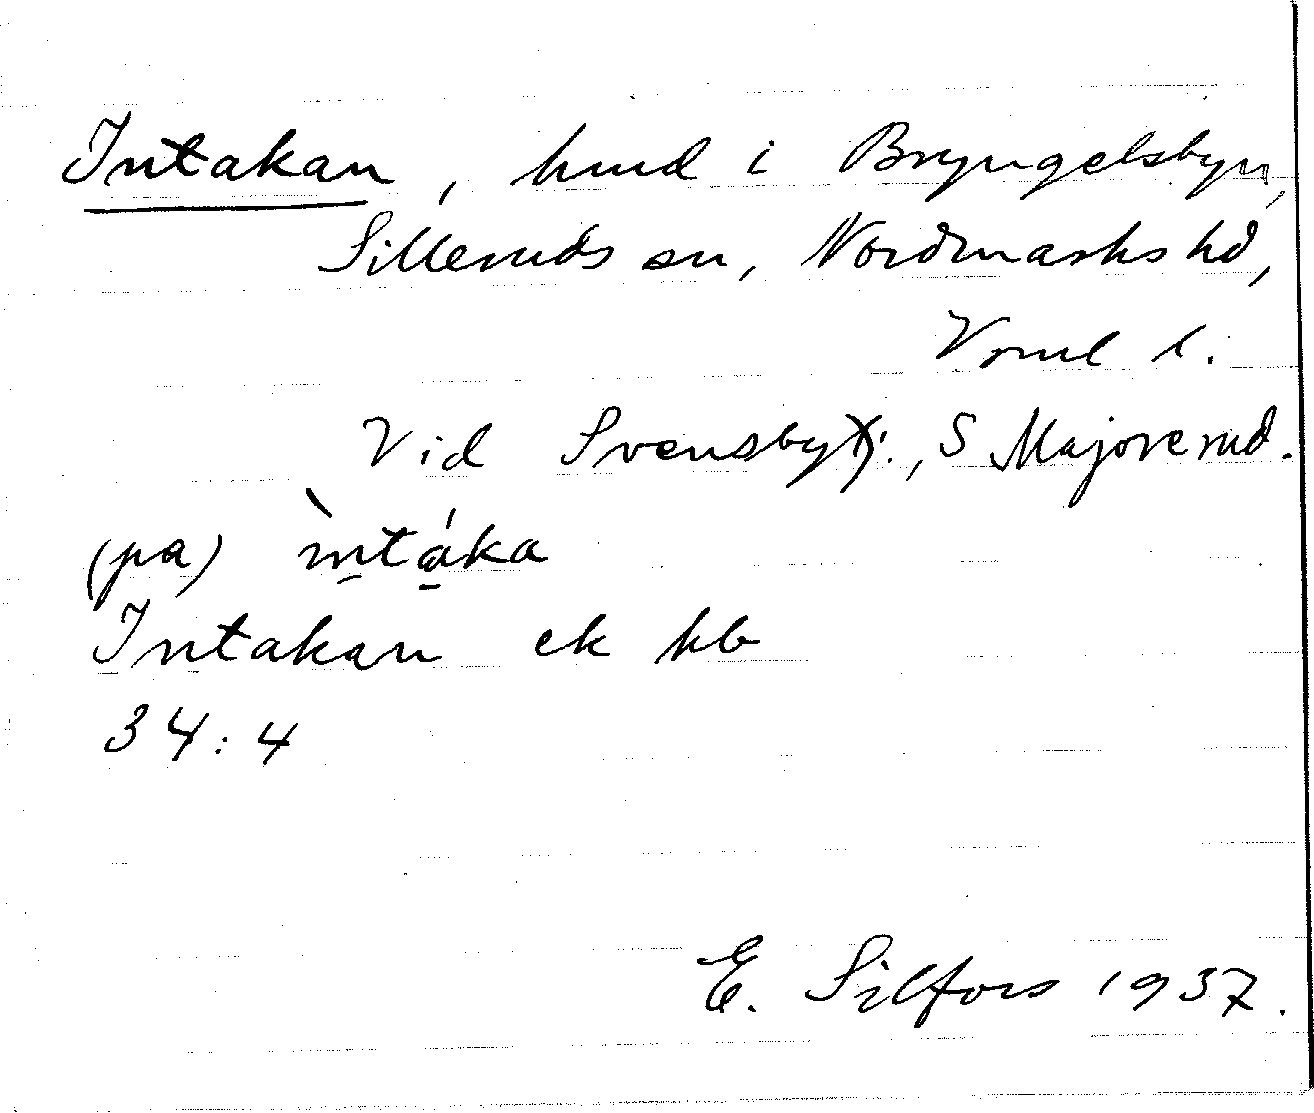 Intakan, hmd i Bryngelsbyn,
Silleruds sn, Nordmarks hd,
Vrml l.
Vid Svensby, S Majorerud.
(pa) ìntáka
Intakan ek kb
34:4
E. Silfors 1937.